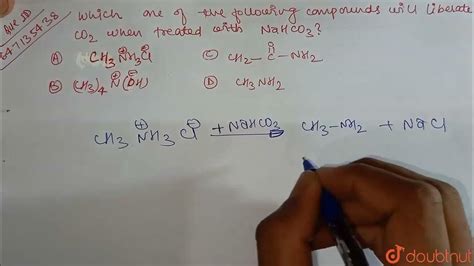 Que ID
6471354738
which one of the following compounds will liberate
CO₂ when treated with NaHCO₃?
(A) CH₃N⊕H₃Cl⊖
(C) CH₂-C(=O)-NH₂
(B) (CH₃)₄N⊕(OH)⊖
(D) CH₃NH₂
CH₃N⊕H₃Cl⊖ +NaHCO₃ → CH₃-NH₂ + NaCl
doubtnut